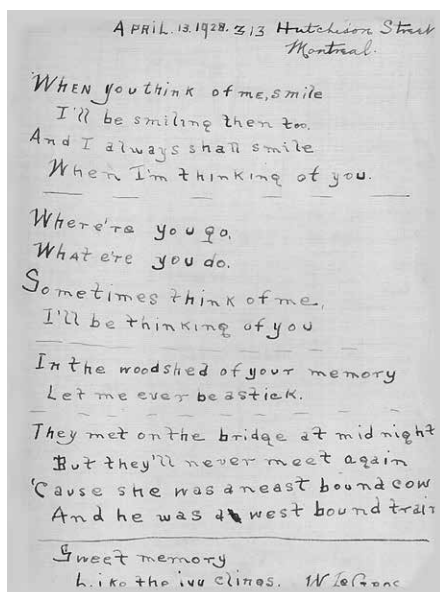 APRIL.13.1928. 313 Hutcheson Street
Montreal.
WHEN you think of me, smile
I'll be smiling then too,
And I always shall smile
When I'm thinking of you.
Where're you go,
What e're you do.
Sometimes think of me,
I'll be thinking of you
In the woodshed of your memory
Let me ever be a stick.
They met on the bridge at midnight
But they'll never meet again
'Cause she was an east bound cow
And he was a west bound train
Sweet memory
Like the ivy clings. W